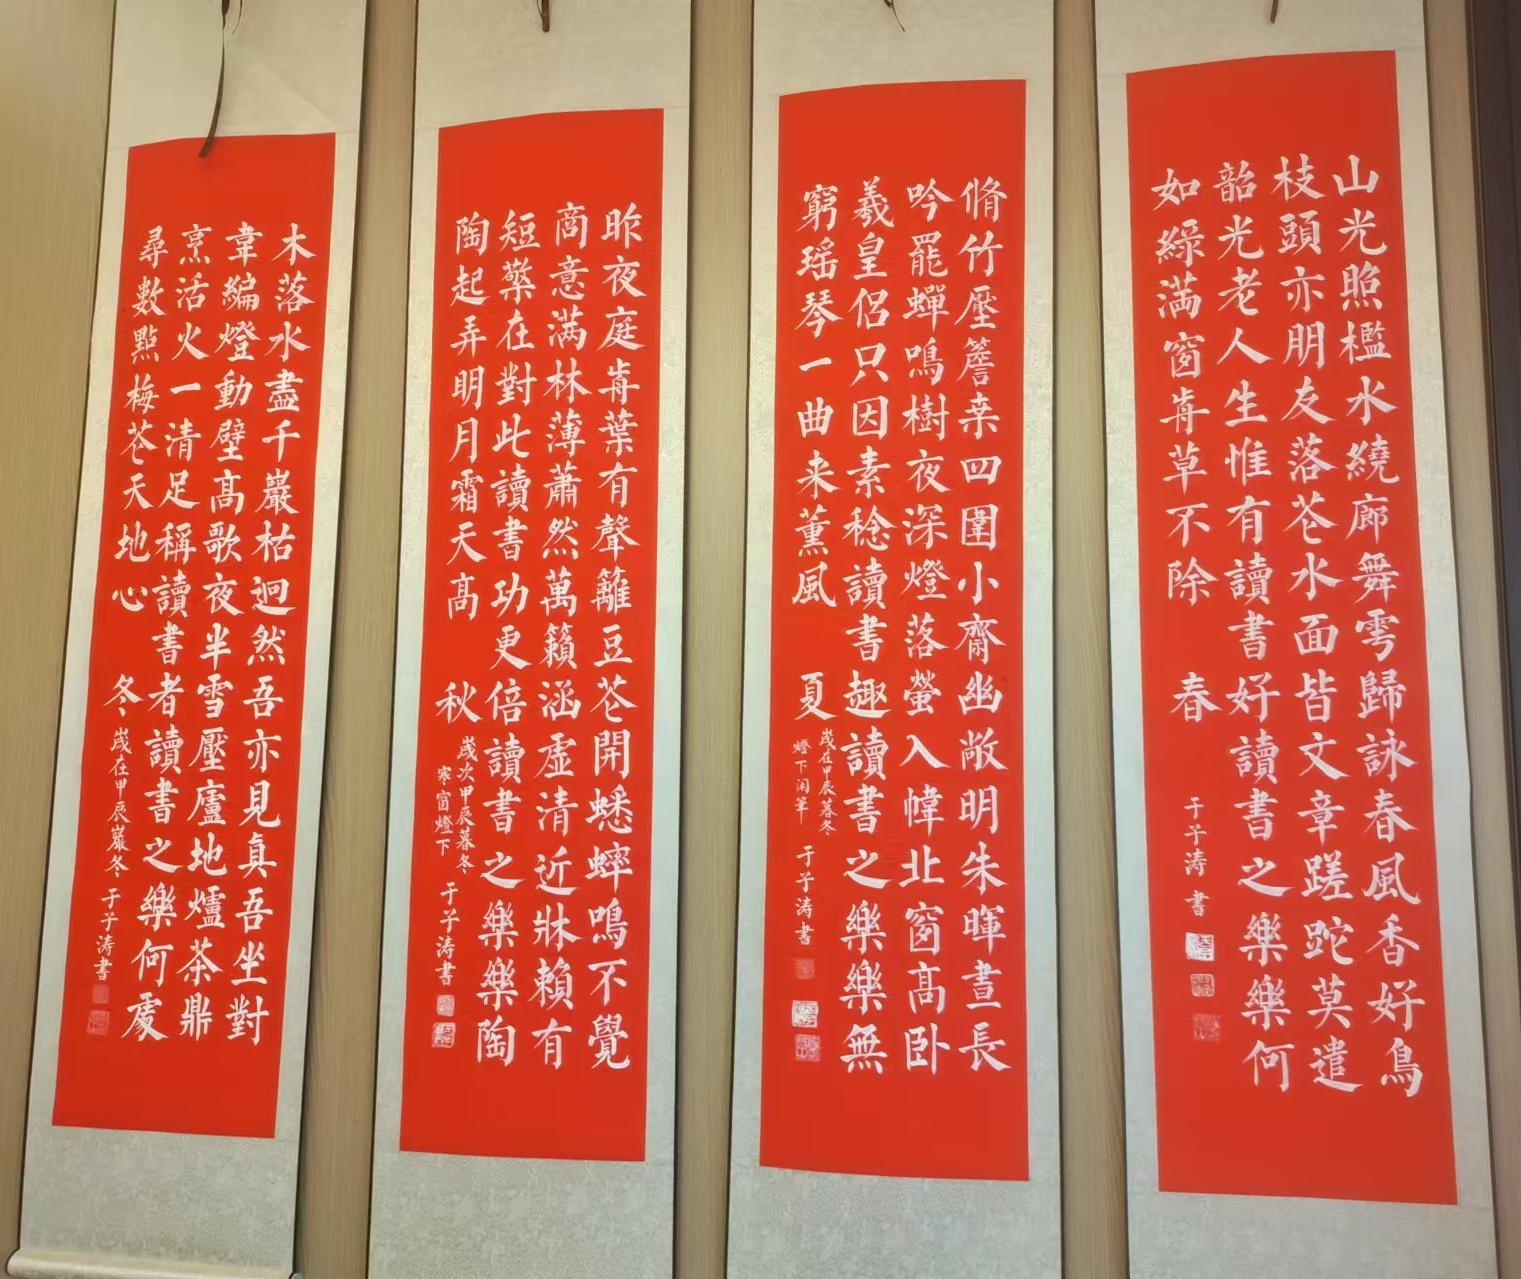 山光照檻水繞廊舞雩歸詠春風香好鳥
枝頭亦朋友落芲水面皆文章蹉跎莫遣
韶光老人生惟有讀書好讀書之樂樂何
如綠满窗歬草不除 春 于子涛書
脩竹壓簷桒四圍小齋幽敞明朱暉晝長
吟罷蟬鳴樹夜深燈落螢入幃北窗髙卧
羲皇侣只因素稔讀書趣讀書之樂樂無
窮瑶琴一曲来薰風 夏
嵗在甲辰暮冬
燈下闲筆 于子涛書
昨夜庭歬葉有聲籬豆芲開蟋蟀鳴不覺
商意满林薄蕭然萬籟涵虚清近牀賴有
短檠在對此讀書功更倍讀書之樂樂陶
陶起弄明月霜天髙 秋
嵗次甲辰暮冬
寒窗燈下 于子涛書
木落水盡千巖枯迥然吾亦見真吾坐對
韋編燈動壁髙歌夜半雪壓廬地爐茶鼎
烹活火一清足稱讀書者讀書之樂何處
尋數點梅芲天地心 冬 嵗在甲辰嚴冬 于子涛書